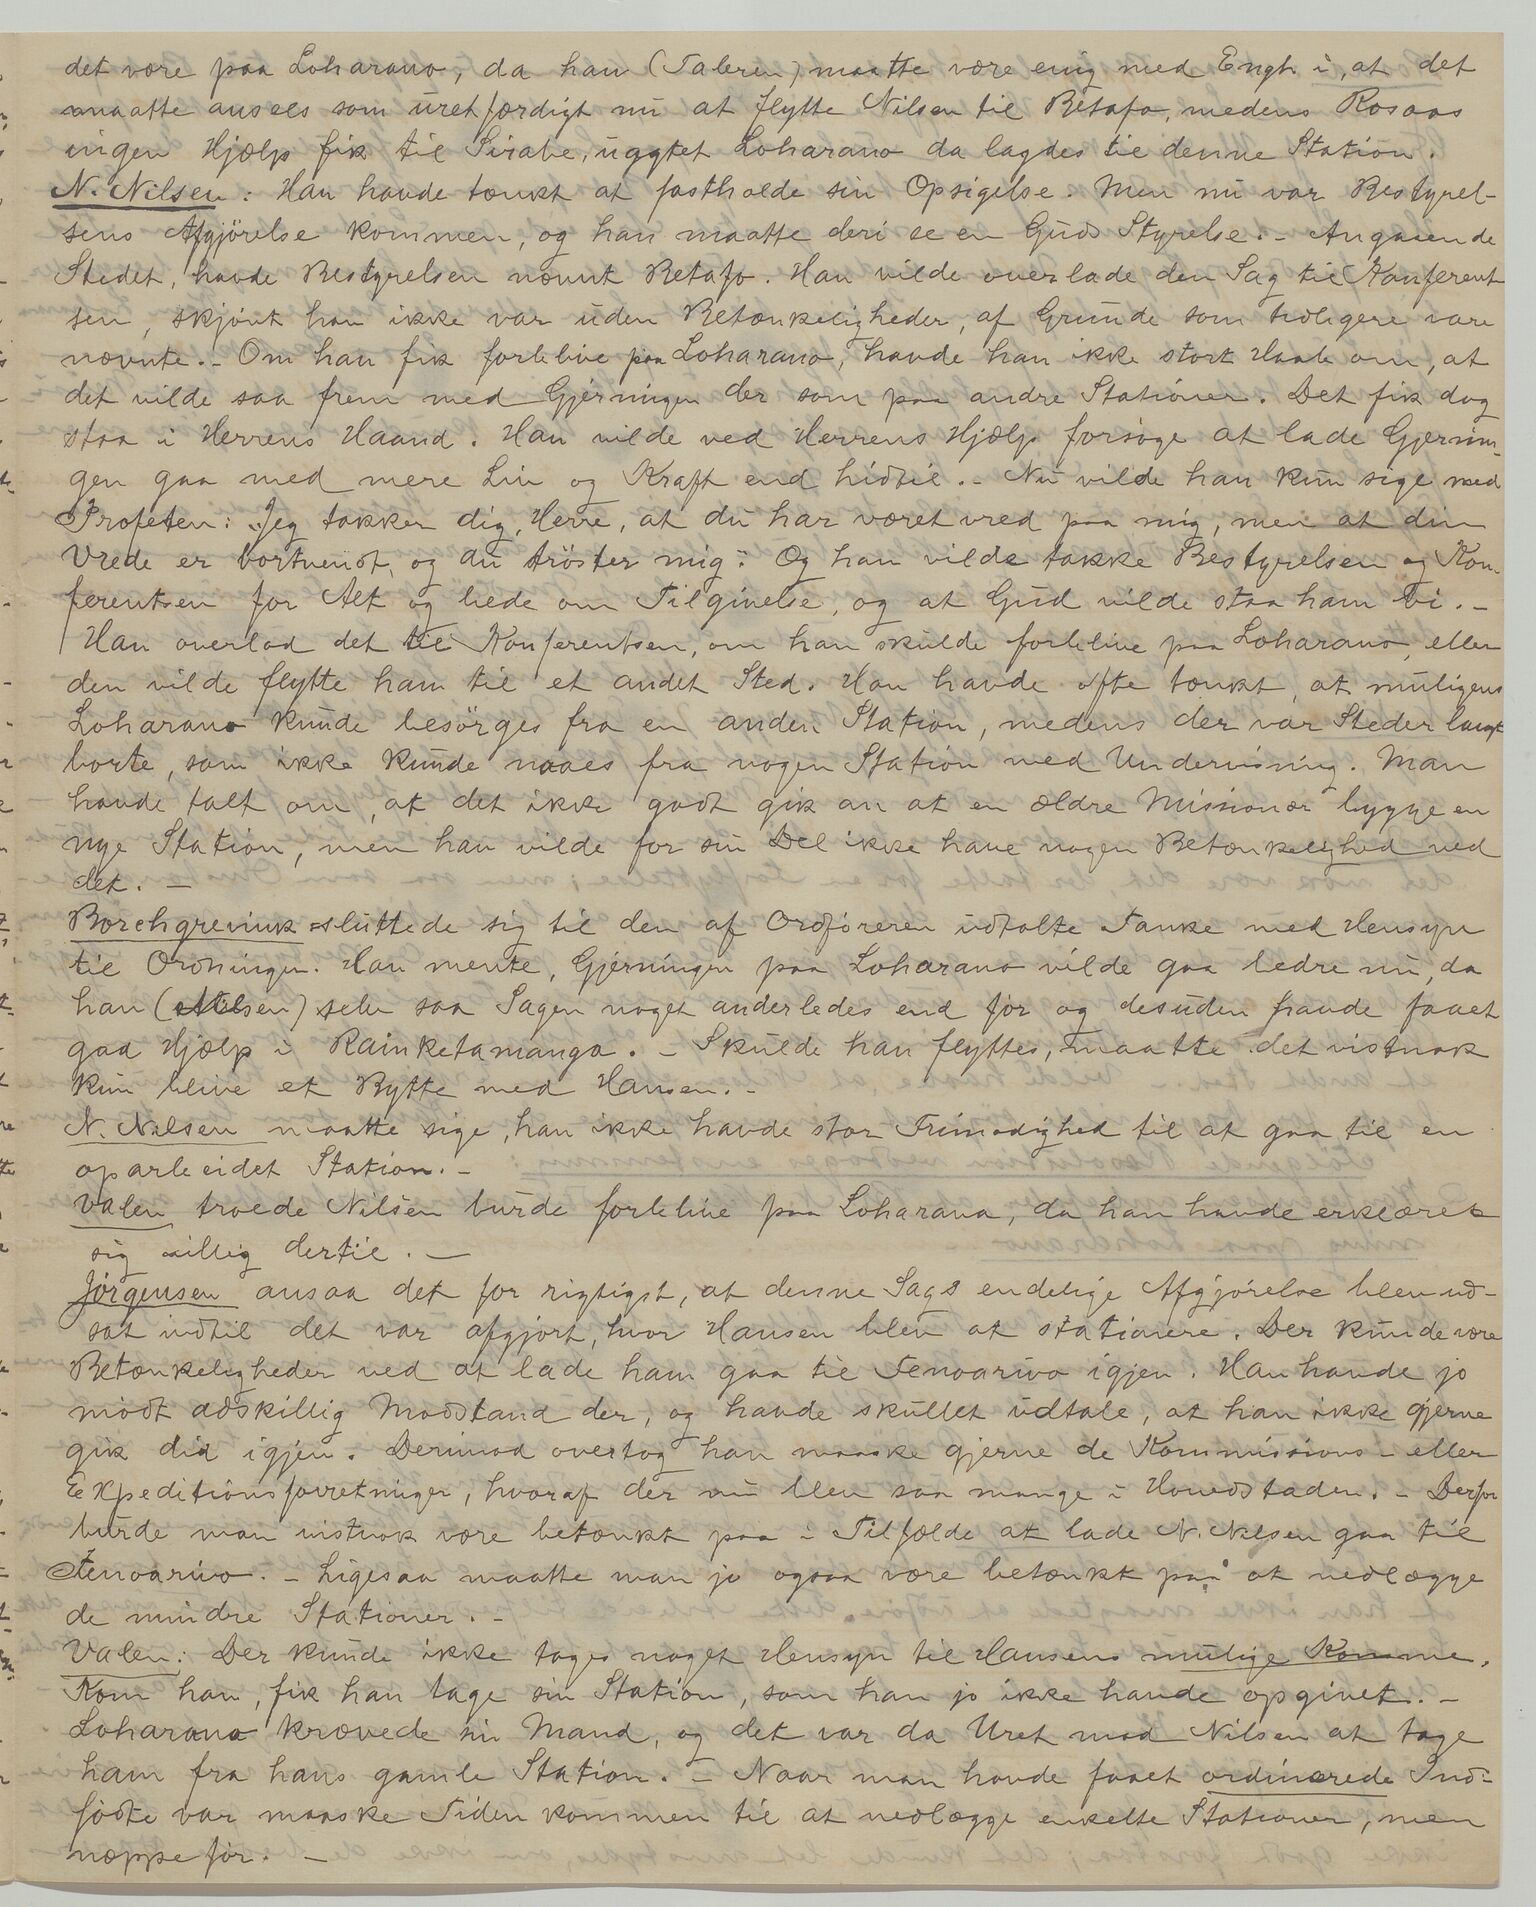 det være paa Loharano, da han (Taleren) maatte være enig med Engh i, at det
maatte ansees som uretfærdigt nu at flytte Nilsen til Betafo, medens Rosaas
ingen Hjælp fik til Sirabe, uagtet Loharano da lagdes til denne Station.
N. Nilsen: Han havde tænkt at fastholde sin Opsigelse. Men nu var Bestyrel-
sens Afgjörelse kommen, og han maatte deri se en Guds Styrelse. - Angaaende
Stedet, havde Bestyrelsen nævnt Betafo. Han vilde overlade den Sag til Konferent
sen, skjönt han ikke var uden Betænkeligheder, af Grunde som tidligere vare
nævnte. - Om han fik forblive paa Loharano, havde han ikke stort Haab om, at
det vilde saa frem med Gjerningen der som paa andre Stationer. Det fik dog
staa i Herrens Haand. Han vilde ved Herrens Hjælp forsöge at lade Gjernin-
gen gaa med mere Liv og Kraft end hidtil. - Nu vilde han kun sige med
Profeten: "Jeg takker dig, Herre, at du har været vred paa mig, men at din
Vrede er bortvendt, og du tröster mig." Og han vilde takke Bestyrelsen og Kon-
ferentsen for Alt og bede om Tilgivelse, og at Gud vilde staa ham bi. -
Han overlod det til Konferentsen, om han skulde forblive paa Loharano, eller
den vilde flytte ham til et andet Sted. Han havde ofte tænkt, at muligens
Loharano kunde besörges fra en anden Station, medens der var Steder langt
borte, som ikke kunde naaes fra nogen Station med Undervisning. Man
havde talt om, at det ikke godt gik an at en ældre Missionær bygge en
nye Station, men han vilde for sin Del ikke have nogen Betænkelighed ved
det. -
Borchgrevink sluttede sig til den af Ordföreren udtalte Tanke med Hensyn
til Ordningen. Han mente, Gjerningen paa Loharano vilde gaa bedre nu, da
han (Nilsen) selv saa Sagen noget anderledes end för og desuden havde faaet
god Hjælp i Rainketamanga. - Skulde han flyttes, maatte det vistnok
kun blive et Bytte med Hansen. -
N. Nilsen maatte sige, han ikke havde stor Frimodighed til at gaa til en
oparbeidet Station. -
Valen troede Nilsen burde forblive paa Loharano, da han havde erklæret
sig villig dertil. -
Jörgensen ansaa det for rigtigst, at denne Sags endelige Afgjörelse blev ud-
sat indtil det var afgjort, hvor Hansen blev at stationere. Der kunde være
Betænkeligheder ved at lade ham gaa til Fenoarivo igjen. Han havde jo
mödt adskillig Modstand der, og havde skullet udtale, at han ikke gjerne
gik did igjen. Derimod overtog han maaske gjerne de Kommissions- eller
Expeditionsforretninger, hvoraf der nu blev saa mange i Hovedstaden. - Derfor
burde man vistnok være betænkt paa i Tilfælde at lade N. Nilsen gaa til
Fenoarivo. - Ligesaa maatte man jo ogsaa være betænkt paa at nedlægge
de mindre Stationer. -
Valen: Der kunde ikke tages noget Hensyn til Hansens mulige Komme.
Kom han, fik han tage sin Station, som han jo ikke havde opgivet. -
Loharano krævede sin Mand, og det var da Uret mod Nilsen at tage
ham fra hans gamle Station. - Naar man havde faaet ordinerede Ind-
födte var maaske Tiden kommen til at nedlægge enkelte Stationer, men
næppe för. -